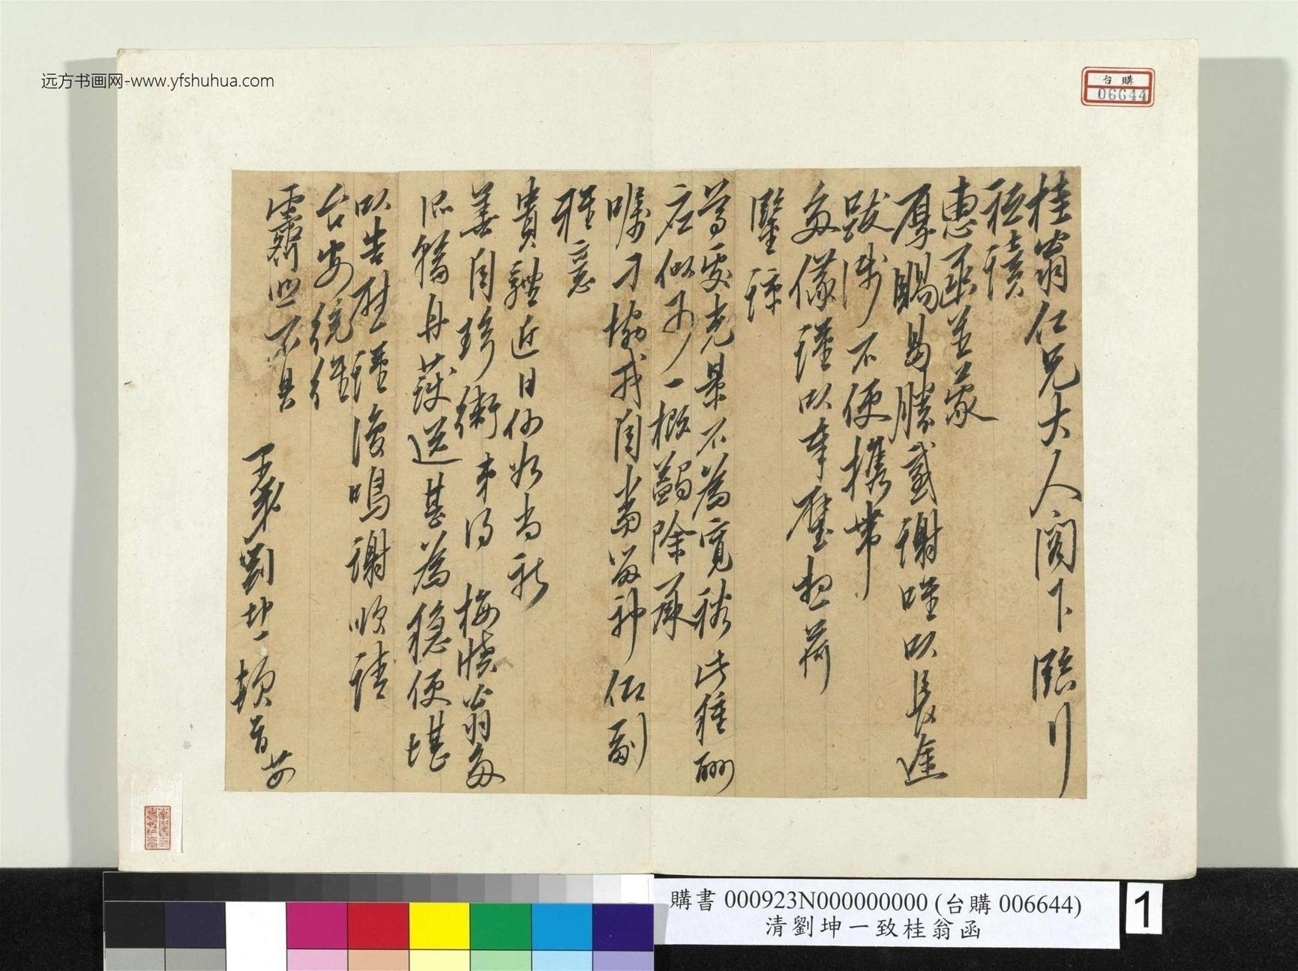 远方书画网-www.yfshuhua.com
台購
06644
桂翁仁兄大人閣下臨行
惠函並蒙
厚賜曷勝感謝唯以長途
跋涉不便攜帶
儀謹以奉璧想荷
鑒諒
尊處光景不為寬裕此種酬
應似可一概蠲除承
囑刀協戎自當留神以副
雅意
貴體近日何如尚祈
善自珍衛弟
舟護送甚為穩便堪
以告慰謹復鳴謝順請
台安統維
霽照不具
弟劉坤一頓首
購書 000923N000000000 (台購 006644)
清劉坤一致桂翁函
1